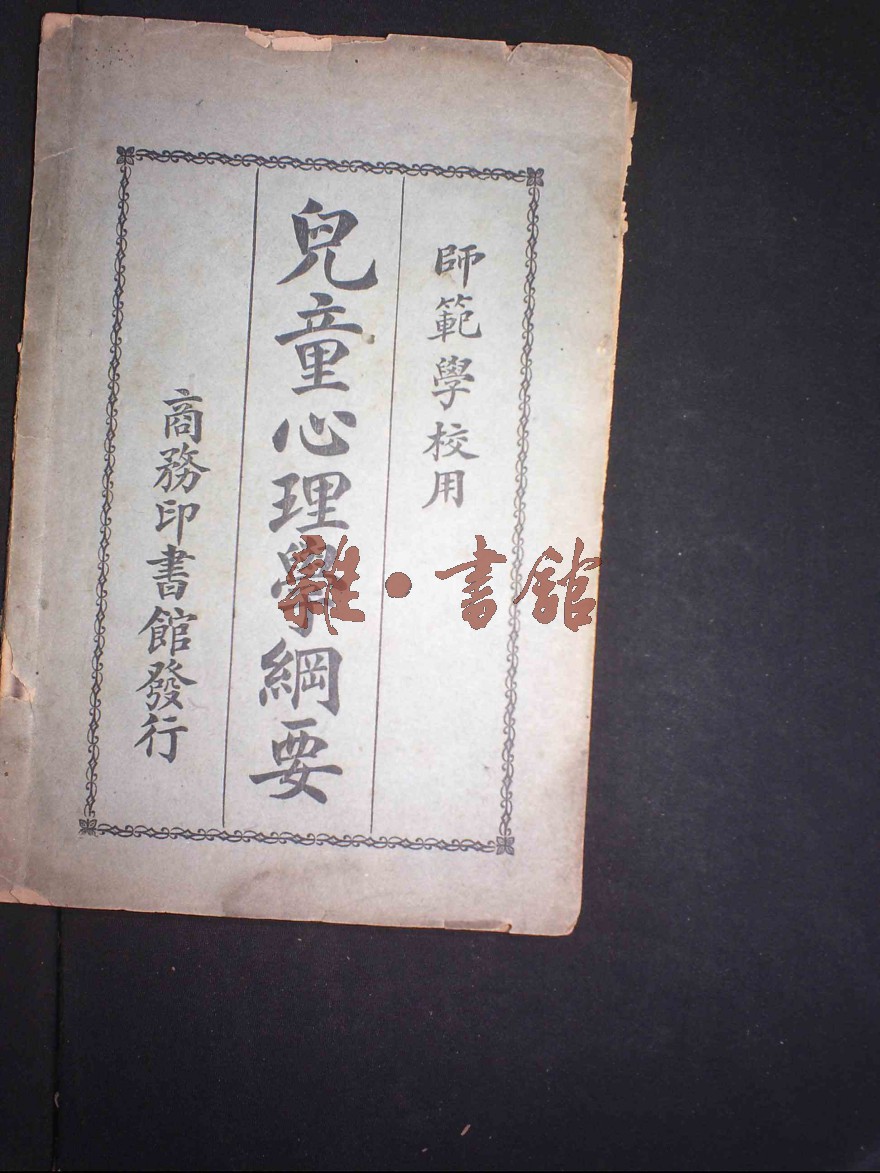 師範學校用
兒童心理學綱要
商務印書館發行
雜·書館